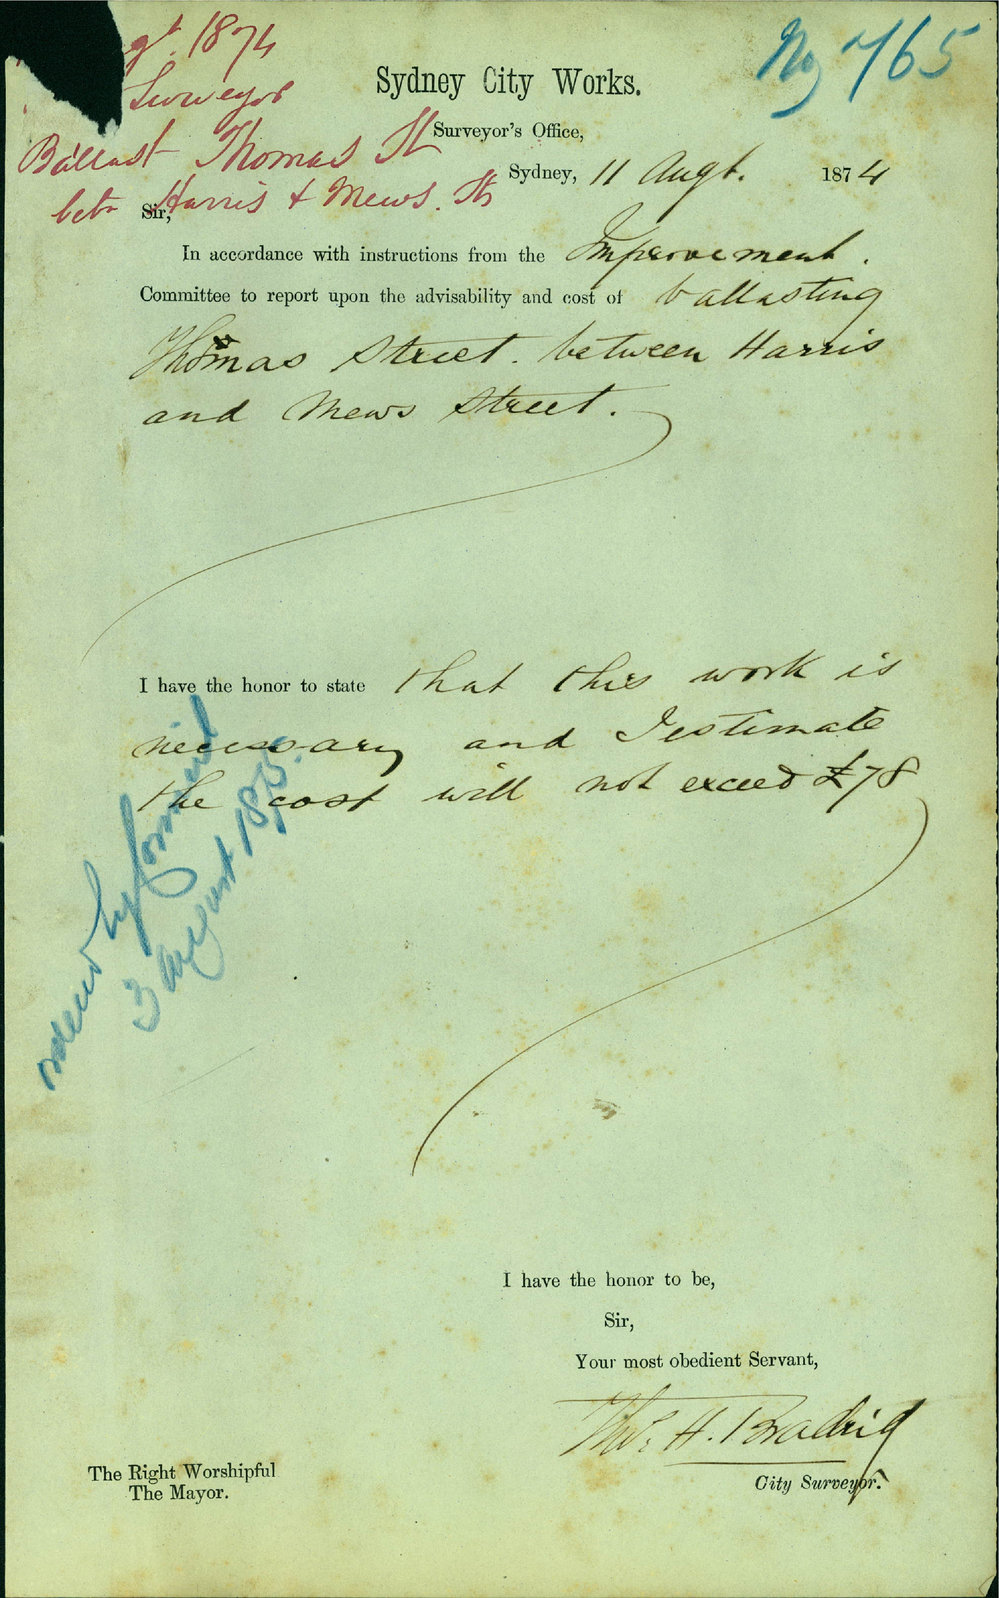 gt. 1874
Surveyor
Ballast Thomas St
betn Harris & Mews. Sts
No 765
Sydney City Works.
Surveyor's Office,
Sydney, 11 Augt. 1874
Sir,
In accordance with instructions from the Improvement.
Committee to report upon the advisability and cost of ballasting
Thomas Street. between Harris
and Mews Street.
I have the honor to state that this work is
necessary and I estimate
the cost will not exceed £78
3 August 1875.
I have the honor to be,
Sir,
Your most obedient Servant,
Thos. H. Bradrig
City Surveyor.
The Right Worshipful
The Mayor.